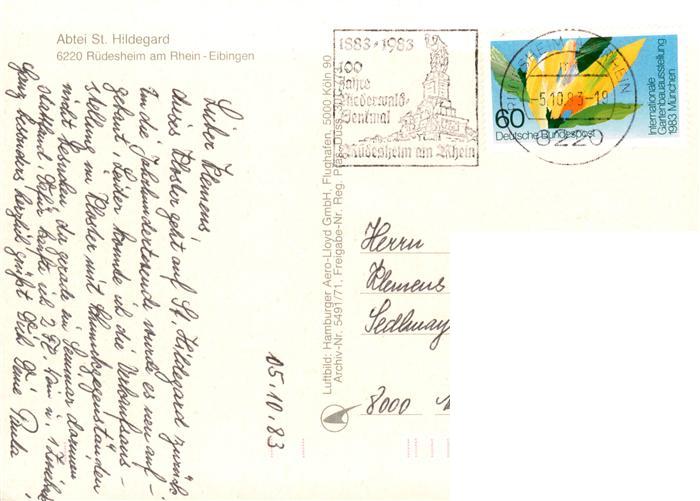 Abtei St. Hildegard
6220 Rüdesheim am Rhein - Eibingen
Lieber Klemens!
dieses Kloster geht auf St. Hildegard zurück
Um die Jahrhundertwende wurde es neu auf-
gebaut. Leider konnte ich die Verkaufsaus-
stellung im Kloster mit Kunstgegenständen
nicht besuchen, da gerade ein Seminar darinnen
stattfand. Dafür kaufte ich 2
Ganz besonders herzlich grüßt Dich Deine
05.10.83
Luftbild: Hamburger Aero-Lloyd GmbH, Flughafen, 5000 Köln 90
Archiv-Nr. 5491/71, Freigabe-Nr. Reg. Präs. Düss.
1883 - 1983
100
Jahre
Niederwald-
Denkmal
Rüdesheim am Rhein
-5.10.83-19
6220
60
Deutsche Bundespost
Internationale
Gartenbauausstellung
1983 München
Herrn
Klemens
Sedlmay
8000